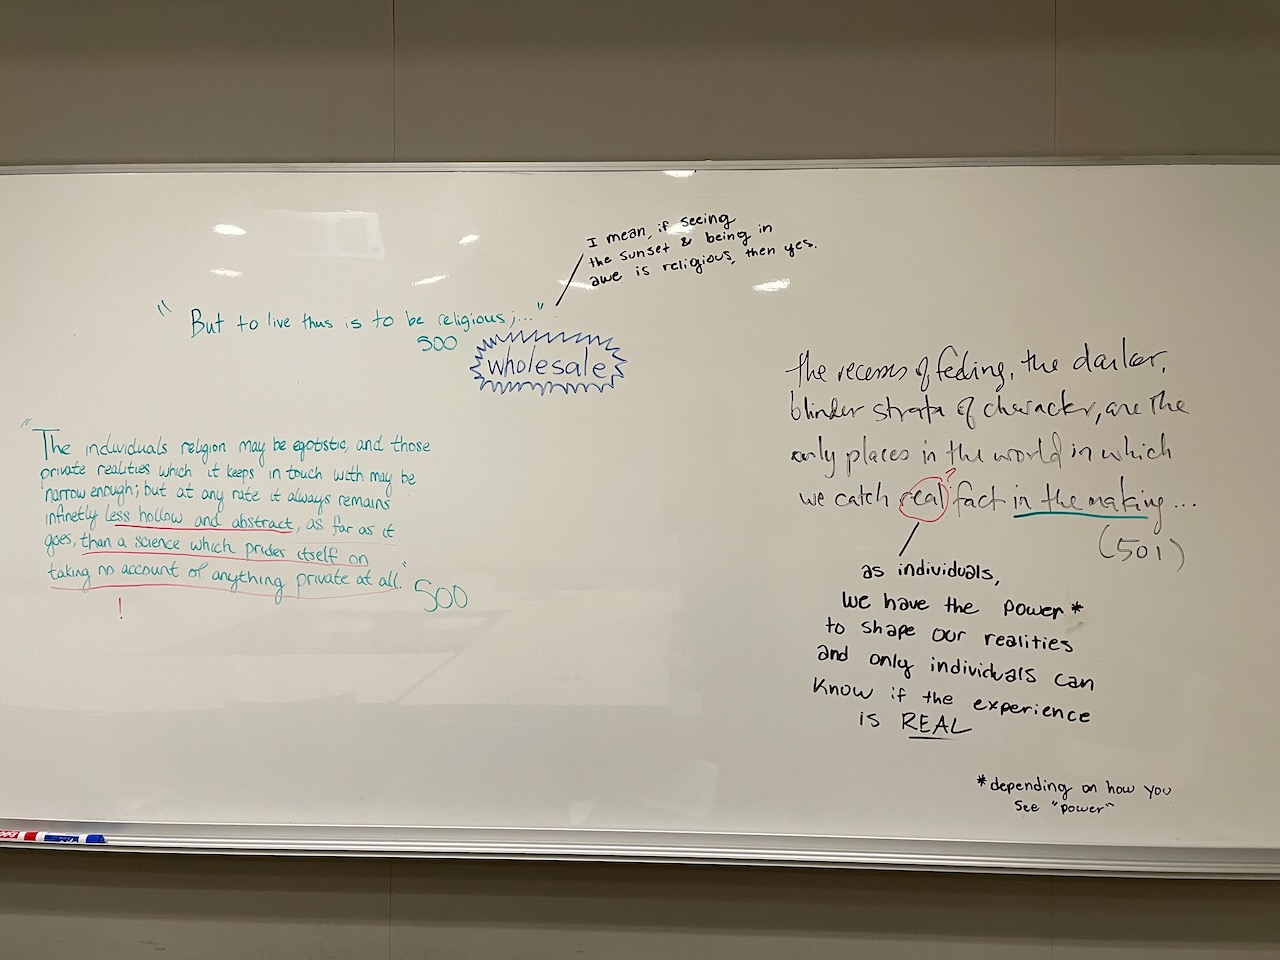 I mean, if seeing
the sunset & being in
awe is religious, then yes.
" But to live thus is to be religious;..."
500
wholesale
"The individuals religion may be egotistic, and those
private realities which it keeps in touch with may be
narrow enough; but at any rate it always remains
infinetly less hollow and abstract, as far as it
goes, than a science which prides itself on
taking no account of anything private at all."
500
!
the recesses of feeling, the darker,
blinder strata of character, are the
only places in the world in which
?
we catch real fact in the making...
(501)
as individuals,
we have the power*
to shape our realities
and only individuals can
know if the experience
is REAL
*depending on how you
see "power"